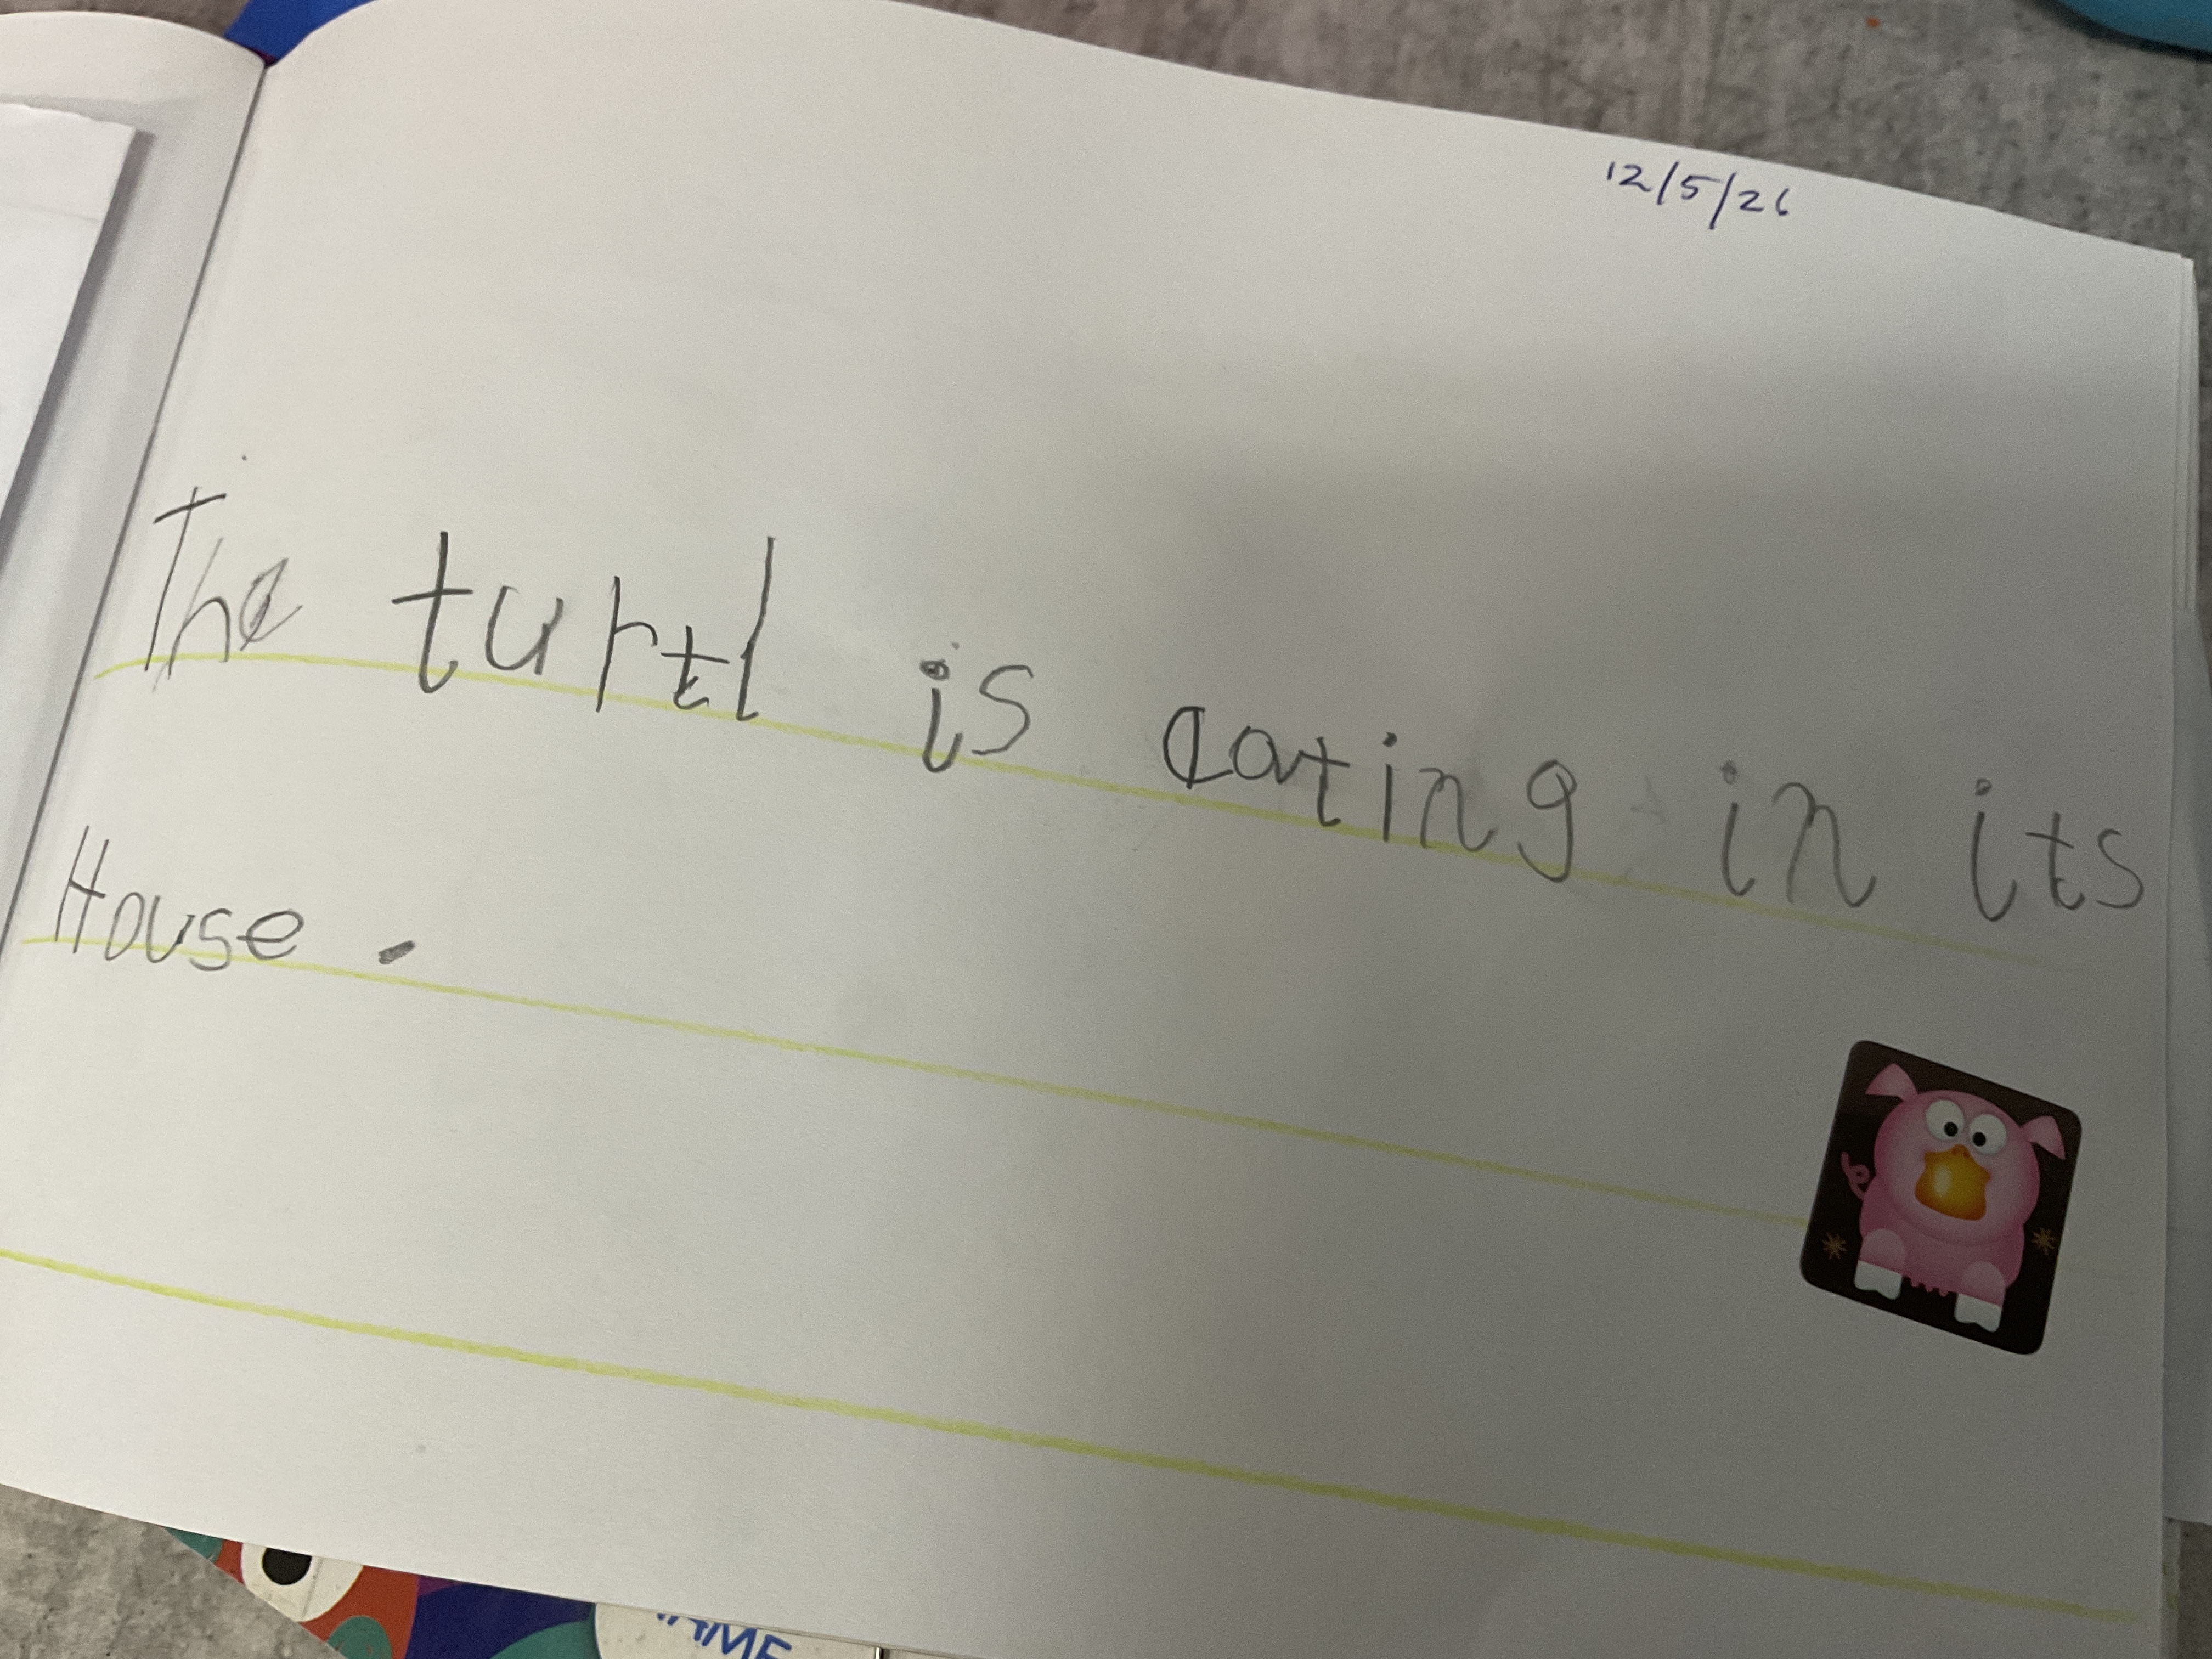 12/5/26
The turtl is eating in its
House.
NAME